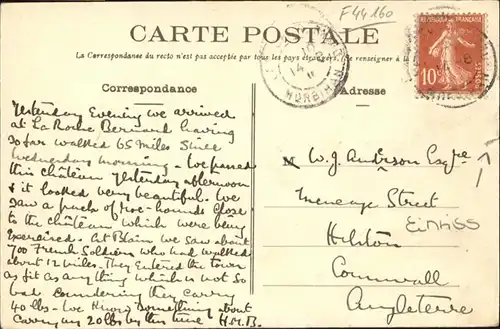 F44160
CARTE POSTALE
La Correspondance du recto n'est pas acceptée par tous les pays étrangers. (Se renseigner à
REPUBLIQUE FRANÇAISE
10
POSTES
MORBIHAN
Correspondance
Adresse
Yesterday Evening we arrived
at La Roche Bernard having
so far walked 65 miles since
Wednesday morning - We passed
this château yesterday afternoon
& it looked very beautiful. We
saw a pack of roe-hounds close
to the château which were being
exercised. At Blain we saw about
700 French Soldiers who had walked
about 12 miles. They entered the town
as fit as anything which is not so
bad considering they carry
40 lbs - We know something about
carrying 20 lbs by this time H.M.B.
W. J. Anderson Esqre
Meneage Street
Einriss
Helston
Cornwall
Angleterre